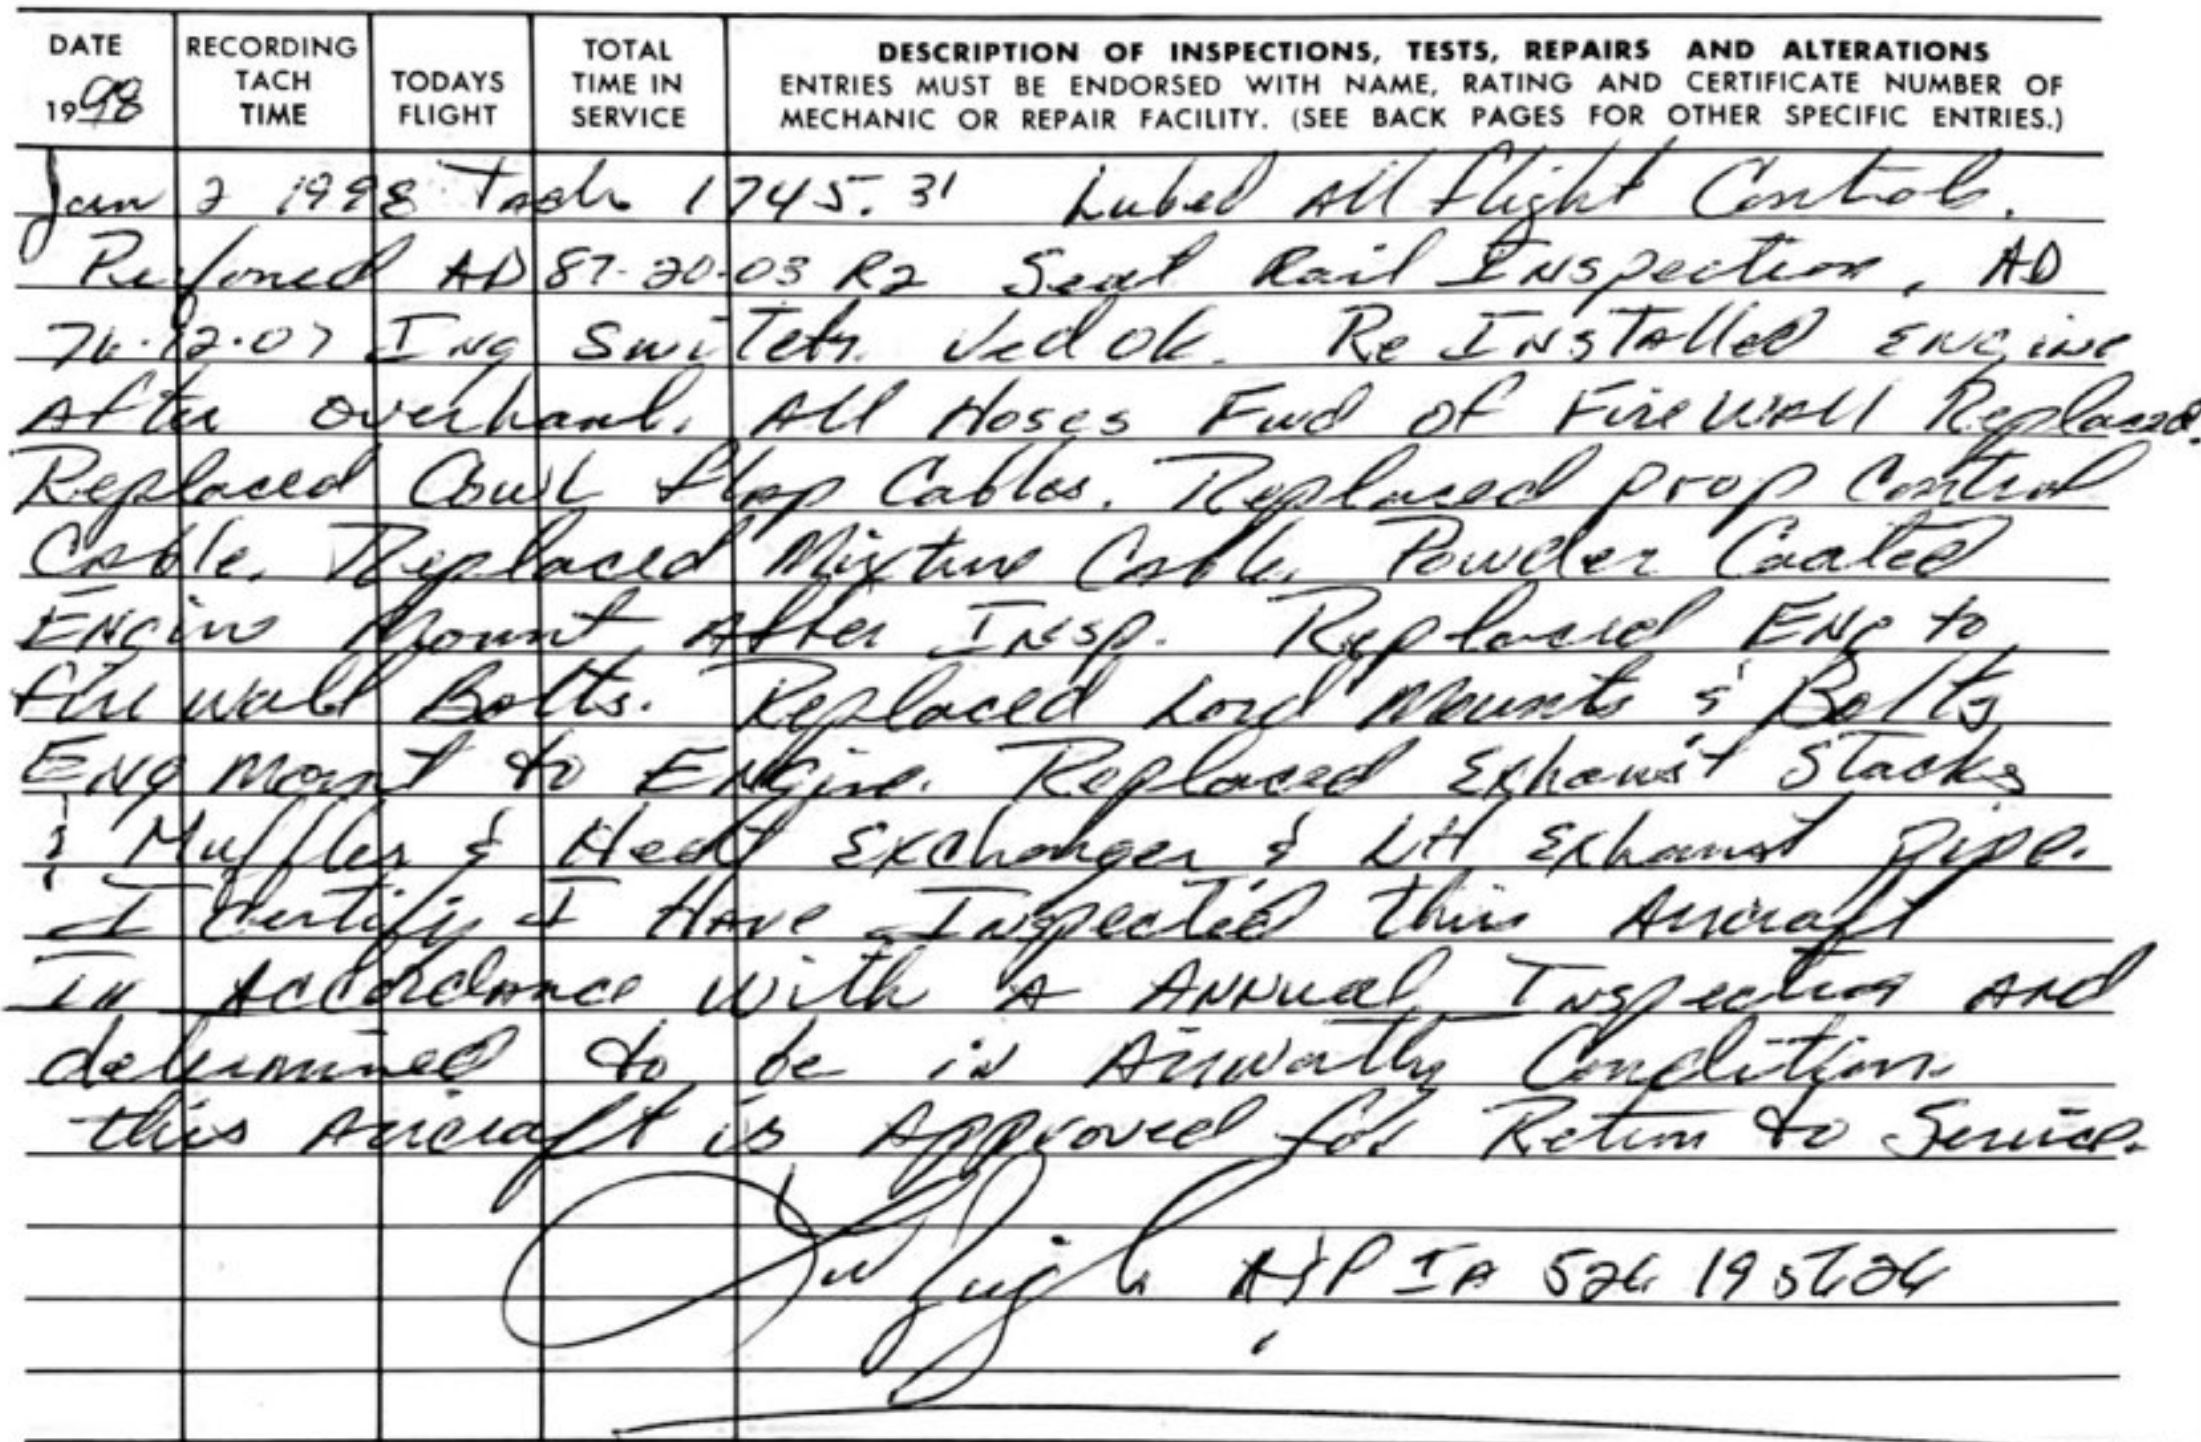 DATE
1998
RECORDING
TACH
TIME
TODAYS
FLIGHT
TOTAL
TIME IN
SERVICE
DESCRIPTION OF INSPECTIONS, TESTS, REPAIRS AND ALTERATIONS
ENTRIES MUST BE ENDORSED WITH NAME, RATING AND CERTIFICATE NUMBER OF
MECHANIC OR REPAIR FACILITY. (SEE BACK PAGES FOR OTHER SPECIFIC ENTRIES.)
Jan 2 1998 Tach 1745.31 Lubed All flight Controls.
Perfomed AD 87-20-03 R2 Seat Rail Inspection, AD
76.12.07 Ing Switch ok. Re Installed Engine
After overhaul. All Hoses Fwd of Firewall Replaced.
Replaced Cowl flap Cables. Replaced prop Control
Cable. Replaced Mixture Cable. Powder Coated
Engine Mount After Insp. Replaced Eng to
fire wall Bolts. Replaced Lord Mounts & Bolts
Eng mount to Engine. Replaced Exhaust Stacks
& Muffler & Heat Exchanger & LH Exhaust pipe.
I Certify I Have Inspected this Aircraft
In Accordance with A Annual Inspection and
determined to be in Airworthy Condition
this Aircraft is Approved for Return to Service.
A&P IA